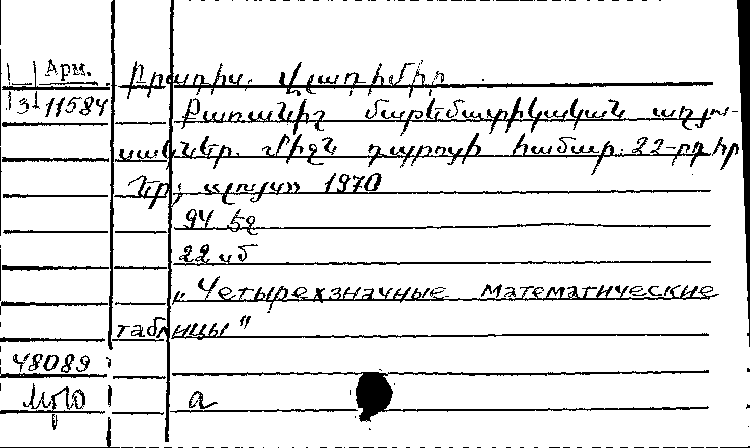 Арм. Բրադիս. Վլադիմիր
3 11584 Քառանիշ մաթեմատիկական աղյու-
սակներ. Միջն դպրոցի համար. 22-րդ հր
Եր; 1970
94 էջ
22 սմ
„Четырехзначные математические
таблицы"
48089
а